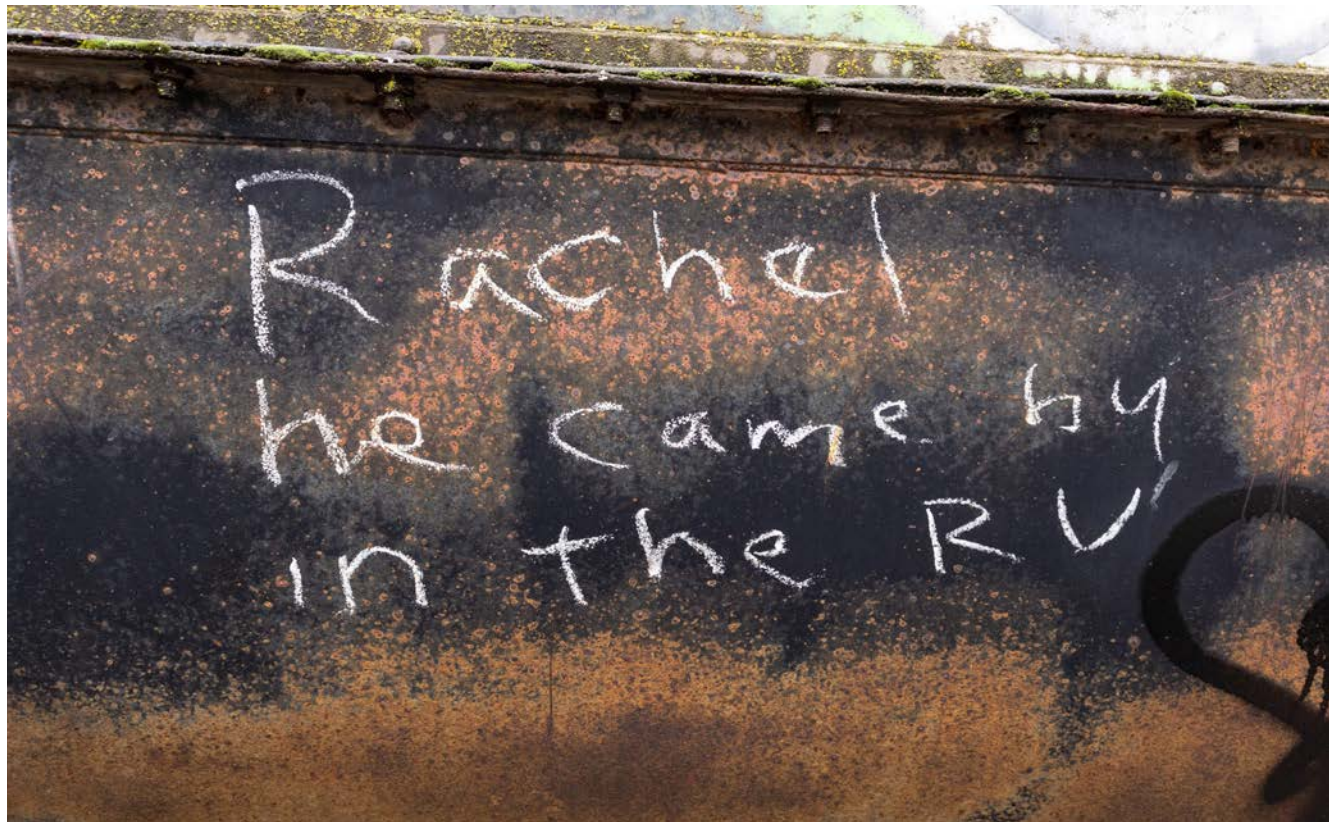 Rachel
he came by
in the RV